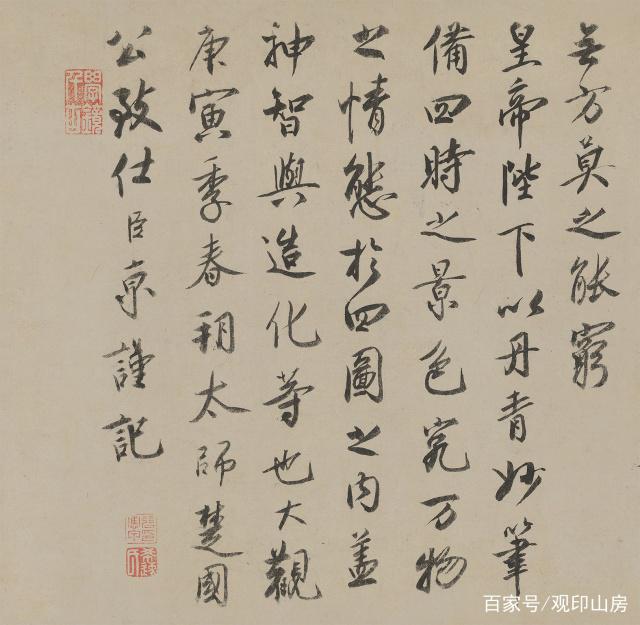 無方莫之能窮
皇帝陛下以丹青妙筆
備四時之景色究万物
之情態於四圖之内蓋
神智與造化等也大觀
庚寅季春朔太師楚國
公致仕臣京謹記
百家号/观印山房